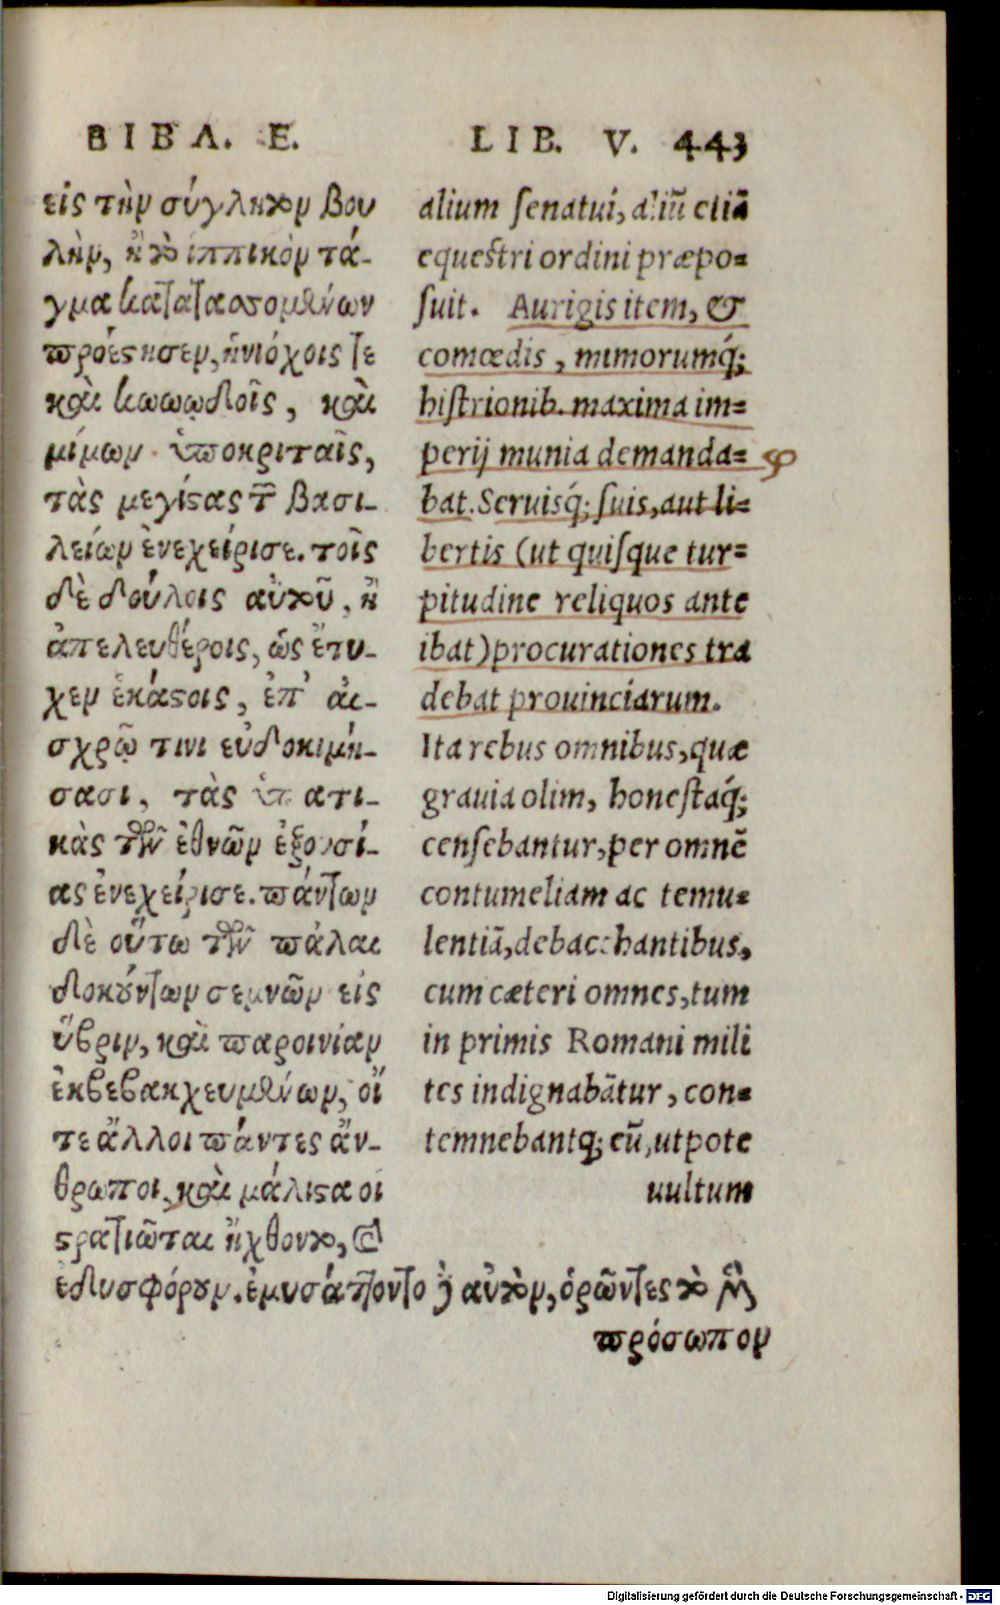 ΒΙΒΛ. Ε.
εἰς τὴν σύγκλητον βου
λὴν, ἢ τὸ ἱππικὸν τά-
γμα κατατασσομένων
προέςησεν, ἡνιόχοις τε
καὶ κωμῳδοῖς, καὶ
μίμων ὑποκριταῖς,
τὰς μεγίςας τῶν βασι-
λείων ἐνεχείρισε. τοῖς
δὲ δούλοις αὐτοῦ, ἢ
ἀπελευθέροις, ὡς ἔτυ-
χεν ἑκάςοις, ἐπ' αἰ-
σχρῷ τινι εὐδοκιμή-
σασι, τὰς ὑπατι-
κὰς τῶν ἐθνῶν ἐξουσί-
ας ἐνεχείρισε. πάντων
δὲ οὕτω τῶν πάλαι
δοκούντων σεμνῶν εἰς
ὕβριν, καὶ παροινίαν
ἐκβεβακχευμένων, οἵ
τε ἄλλοι πάντες ἄν-
θρωποι, καὶ μάλιςα οἱ
ςρατιῶται ἤχθοντο, καὶ
ἐδυσφόρουν. ἐμυσάττοντο δὲ αὐτὸν, ὁρῶντες τὸ μὲν
πρόσωπον
LIB. V. 443
alium ſenatui, aliũ etiã
equeſtri ordini præpo=
ſuit. Aurigis item, &
comœdis, mimorumq́;
hiſtrionib. maxima im=
perij munia demanda=
bat. Seruisq́; ſuis, aut li=
bertis (ut quiſque tur=
pitudine reliquos ante
ibat) procurationes tra
debat prouinciarum.
Ita rebus omnibus, quæ
grauia olim, honeſtaq́;
cenſebantur, per omnẽ
contumeliam ac temu=
lentiã, debacchantibus,
cum cæteri omnes, tum
in primis Romani mili
tes indignabãtur, con=
temnebantq; eũ, utpote
uultum
Digitalisierung gefördert durch die Deutsche Forschungsgemeinschaft - DFG